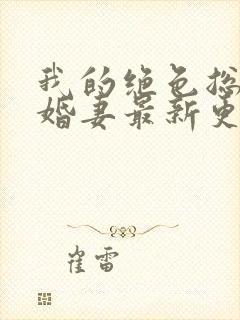 我的绝色总
婚妻最新更
崔雷